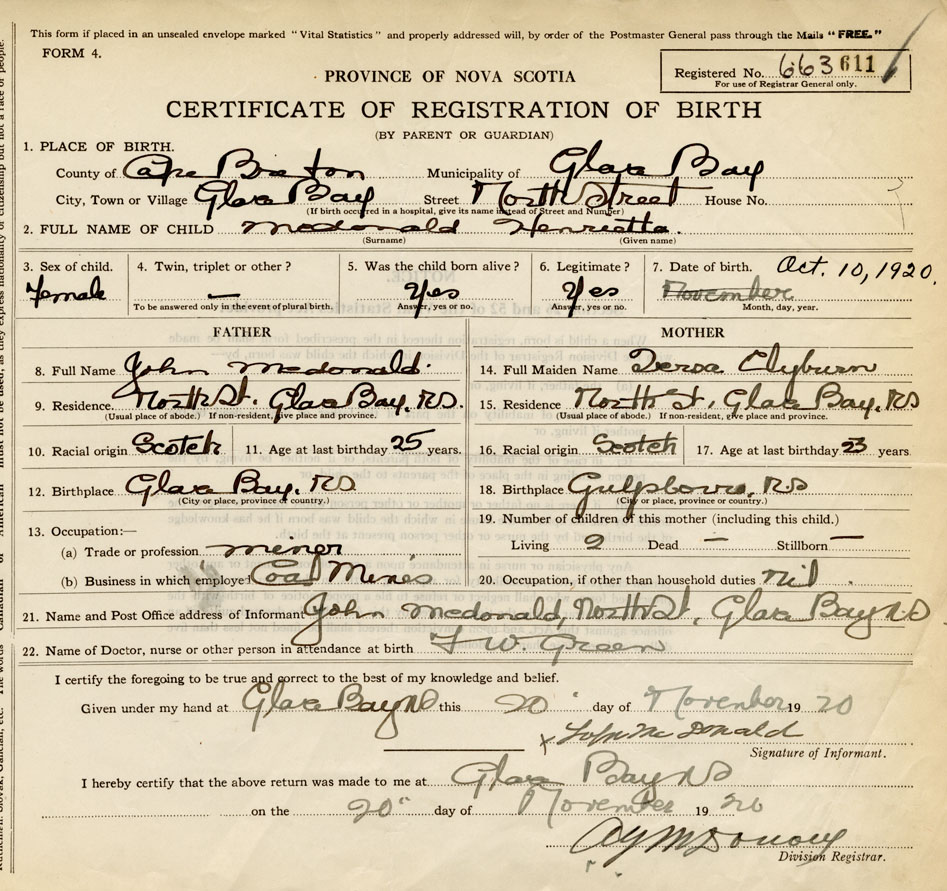 This form if placed in an unsealed envelope marked "Vital Statistics" and properly addressed will, by order of the Postmaster General pass through the Mails "FREE."
FORM 4.
Registered No. 663 611
For use of Registrar General only.
PROVINCE OF NOVA SCOTIA
CERTIFICATE OF REGISTRATION OF BIRTH
(BY PARENT OR GUARDIAN)
1. PLACE OF BIRTH.
County of Cape Breton Municipality of Glace Bay
City, Town or Village Glace Bay Street North Street House No.
(If birth occurred in a hospital, give its name instead of Street and Number)
2. FULL NAME OF CHILD Mcdonald Henrietta.
(Surname) (Given name)
3. Sex of child. 4. Twin, triplet or other? 5. Was the child born alive? 6. Legitimate? 7. Date of birth. Oct. 10, 1920.
Female — Yes Yes November
To be answered only in the event of plural birth. Answer, yes or no. Answer, yes or no. Month, day, year.
FATHER MOTHER
8. Full Name John Mcdonald. 14. Full Maiden Name Clyburn
9. Residence North St. Glace Bay, NS. 15. Residence North St, Glace Bay, NS
(Usual place of abode.) If non-resident, give place and province. (Usual place of abode.) If non-resident, give place and province.
10. Racial origin Scotch 11. Age at last birthday 25 years. 16. Racial origin Scotch 17. Age at last birthday 23 years
12. Birthplace Glace Bay, NS 18. Birthplace NS
(City or place, province or country.) (City or place, province or country.)
13. Occupation:— 19. Number of children of this mother (including this child.)
(a) Trade or profession miner Living 2 Dead — Stillborn —
(b) Business in which employed Coal Mines 20. Occupation, if other than household duties Nil
21. Name and Post Office address of Informant John Mcdonald, North St, Glace Bay NS
22. Name of Doctor, nurse or other person in attendance at birth W. Green
I certify the foregoing to be true and correct to the best of my knowledge and belief.
Given under my hand at Glace Bay NS this 20 day of November 1920
x John McDonald
Signature of Informant.
I hereby certify that the above return was made to me at Glace Bay NS
on the 20" day of November 1920
Division Registrar.